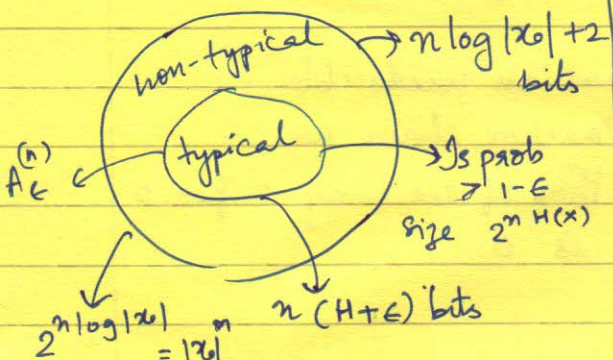 non-typical
→ n log |𝒳| + 2
bits
typical
A_ε^(n)
→ Is prob
> 1-ε
Size 2^{n H(x)}
n (H+ε) bits
2^{n log |𝒳|}
= |𝒳|^n